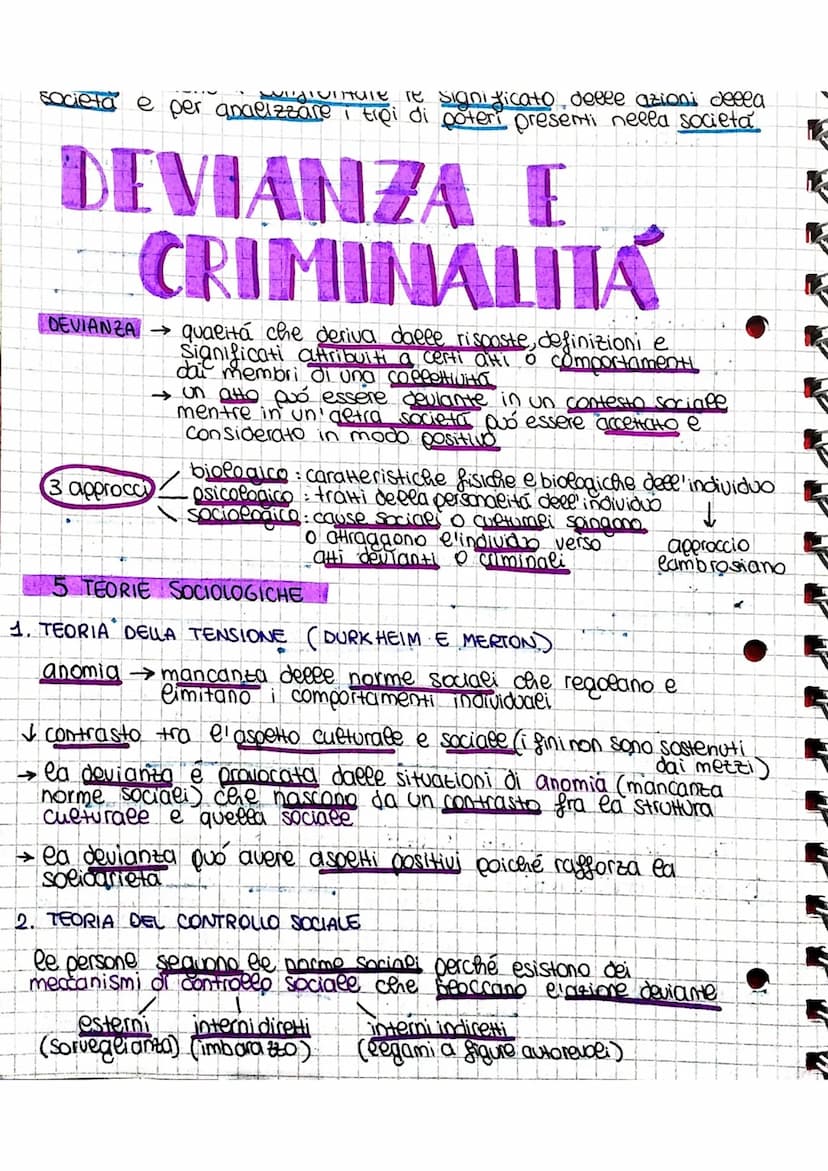 società e per analizzare i tipi di poteri presenti nella società
significato delle azioni della
DEVIANZA E
CRIMINALITÁ
DEVIANZA → qualitá che deriva dalle risposte, definizioni e
significati attribuiti a certi atti o comportamenti
dai membri di una collettivitá
→ un atto puó essere deviante in un contesto sociale
mentre in un'altra societá puó essere accettato e
considerato in modo positivo
3 approcci
biologico : caratteristiche fisiche e biologiche dell'individuo
psicologico : tratti della personalitá dell'individuo
sociologico : cause sociali o culturali spingono
o attraggono l'individuo verso
atti devianti o criminali
↓
approccio
lambrosiano
5 TEORIE SOCIOLOGICHE
1. TEORIA DELLA TENSIONE (DURKHEIM E MERTON)
anomia → mancanza delle norme sociali che regolano e
limitano i comportamenti individuali
↓ contrasto tra l'aspetto culturale e sociale (i fini non sono sostenuti
dai mezzi)
→ la devianza é provocata dalle situazioni di anomia (mancanza
norme sociali) che nascono da un contrasto fra la struttura
culturale e quella sociale
→ la devianza puó avere aspetti positivi poiché rafforza la
solidarietá
2. TEORIA DEL CONTROLLO SOCIALE
le persone seguono le norme sociali perché esistono dei
meccanismi di controllo sociale che bloccano l'azione deviante
esterni
(sorveglianza)
interni diretti
(imbarazzo)
interni indiretti
(legami a figure autorevoli)